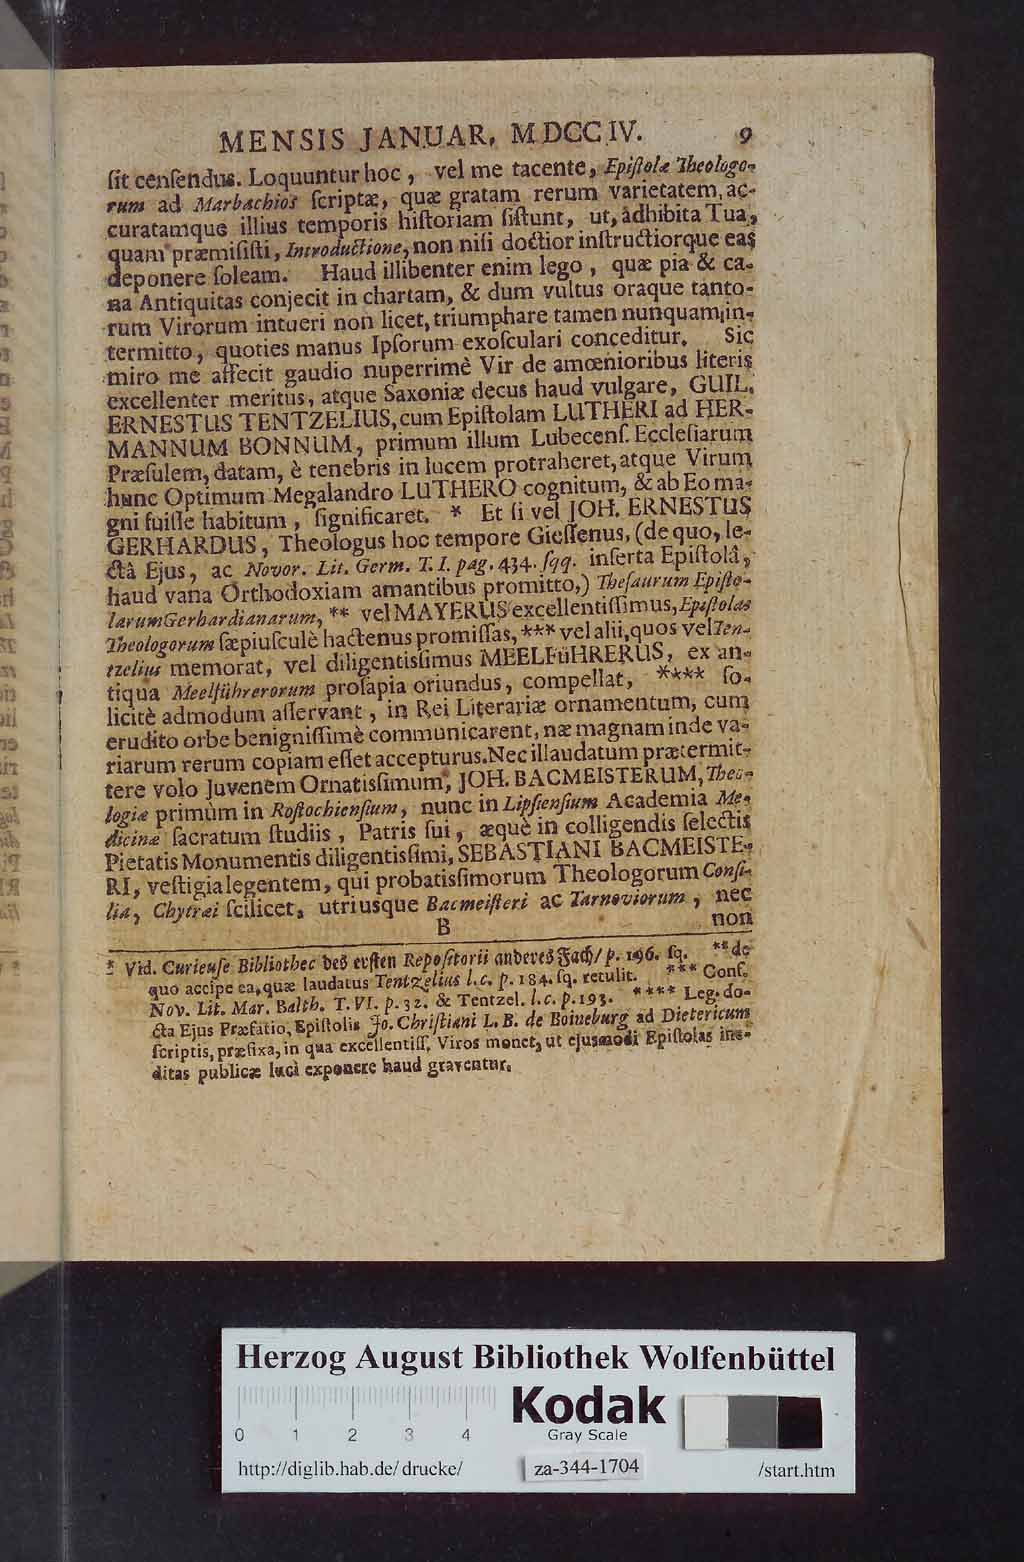 MENSIS JANUAR, MDCCIV. 9
ſit cenſendus. Loquuntur hoc, vel me tacente, Epiſtolæ Theologo-
rum ad Marbachios ſcriptæ, quæ gratam rerum varietatem, ac-
curatamque illius temporis hiſtoriam ſiſtunt, ut, adhibita Tua,
quam præmiſiſti, Introductione, non niſi doctior inſtructiorque eas
deponere ſoleam. Haud illibenter enim lego, quæ pia & ca-
na Antiquitas conjecit in chartam, & dum vultus oraque tanto-
rum Virorum intueri non licet, triumphare tamen nunquam in-
termitto, quoties manus Ipſorum exoſculari conceditur. Sic
miro me affecit gaudio nuperrimè Vir de amœnioribus literis
excellenter meritus, atque Saxoniæ decus haud vulgare, GUIL.
ERNESTUS TENTZELIUS, cum Epiſtolam LUTHERI ad HER-
MANNUM BONNUM, primum illum Lubecenſ. Eccleſiarum
Præſulem, datam, è tenebris in lucem protraheret, atque Virum
hunc Optimum Megalandro LUTHERO cognitum, & ab Eo ma-
gni fuiſſe habitum, ſignificaret. * Et ſi vel JOH. ERNESTUS
GERHARDUS, Theologus hoc tempore Gieſſenus, (de quo, le-
ctâ Ejus, ac Novor. Lit. Germ. T. I. pag. 434. ſqq. inſerta Epiſtolâ,
haud vana Orthodoxiam amantibus promitto,) Theſaurum Epiſto-
larum Gerhardianarum, ** vel MAYERUS excellentiſſimus, Epiſtolas
Theologorum ſæpiuſculè hactenus promiſſas, *** vel alii, quos vel Ten-
tzelius memorat, vel diligentisſimus MEELFüHRERUS, ex an-
tiqua Meelführerorum proſapia oriundus, compellat, **** ſo-
licitè admodum aſſervant, in Rei Literariæ ornamentum, cum
erudito orbe benigniſſimè communicarent, næ magnam inde va-
riarum rerum copiam eſſet accepturus. Nec illaudatum prætermit-
tere volo Juvenem Ornatisſimum, JOH. BACMEISTERUM, Theo-
logiæ primùm in Roſtochienſium, nunc in Lipſienſium Academia Me-
dicinæ ſacratum ſtudiis, Patris ſui, æquè in colligendis ſelectis
Pietatis Monumentis diligentisſimi, SEBASTIANI BACMEISTE-
RI, veſtigia legentem, qui probatisſimorum Theologorum Conſi-
lia, Chytræi ſcilicet, utriusque Bacmeiſteri ac Tarnoviorum, nec
B non
* Vid. Curieuſe Bibliothec des erſten Repoſitorii anderes Fach/ p. 196. ſq. ** de
quo accipe ea, quæ laudatus Tentzelius l. c. p. 184. ſq. retulit. *** Conf.
Nov. Lit. Mar. Balth. T. VI. p. 32. & Tentzel. l. c. p. 193. **** Leg. do-
cta Ejus Præfatio, Epiſtolis Jo. Chriſtiani L. B. de Boineburg ad Dietericum
ſcriptis, præfixa, in qua excellentiſſ. Viros monet, ut ejusmodi Epiſtolas ine-
ditas publicæ luci exponere haud graventur.
Herzog August Bibliothek Wolfenbüttel
0 1 2 3 4
Kodak
Gray Scale
http://diglib.hab.de/drucke/ za-344-1704 /start.htm